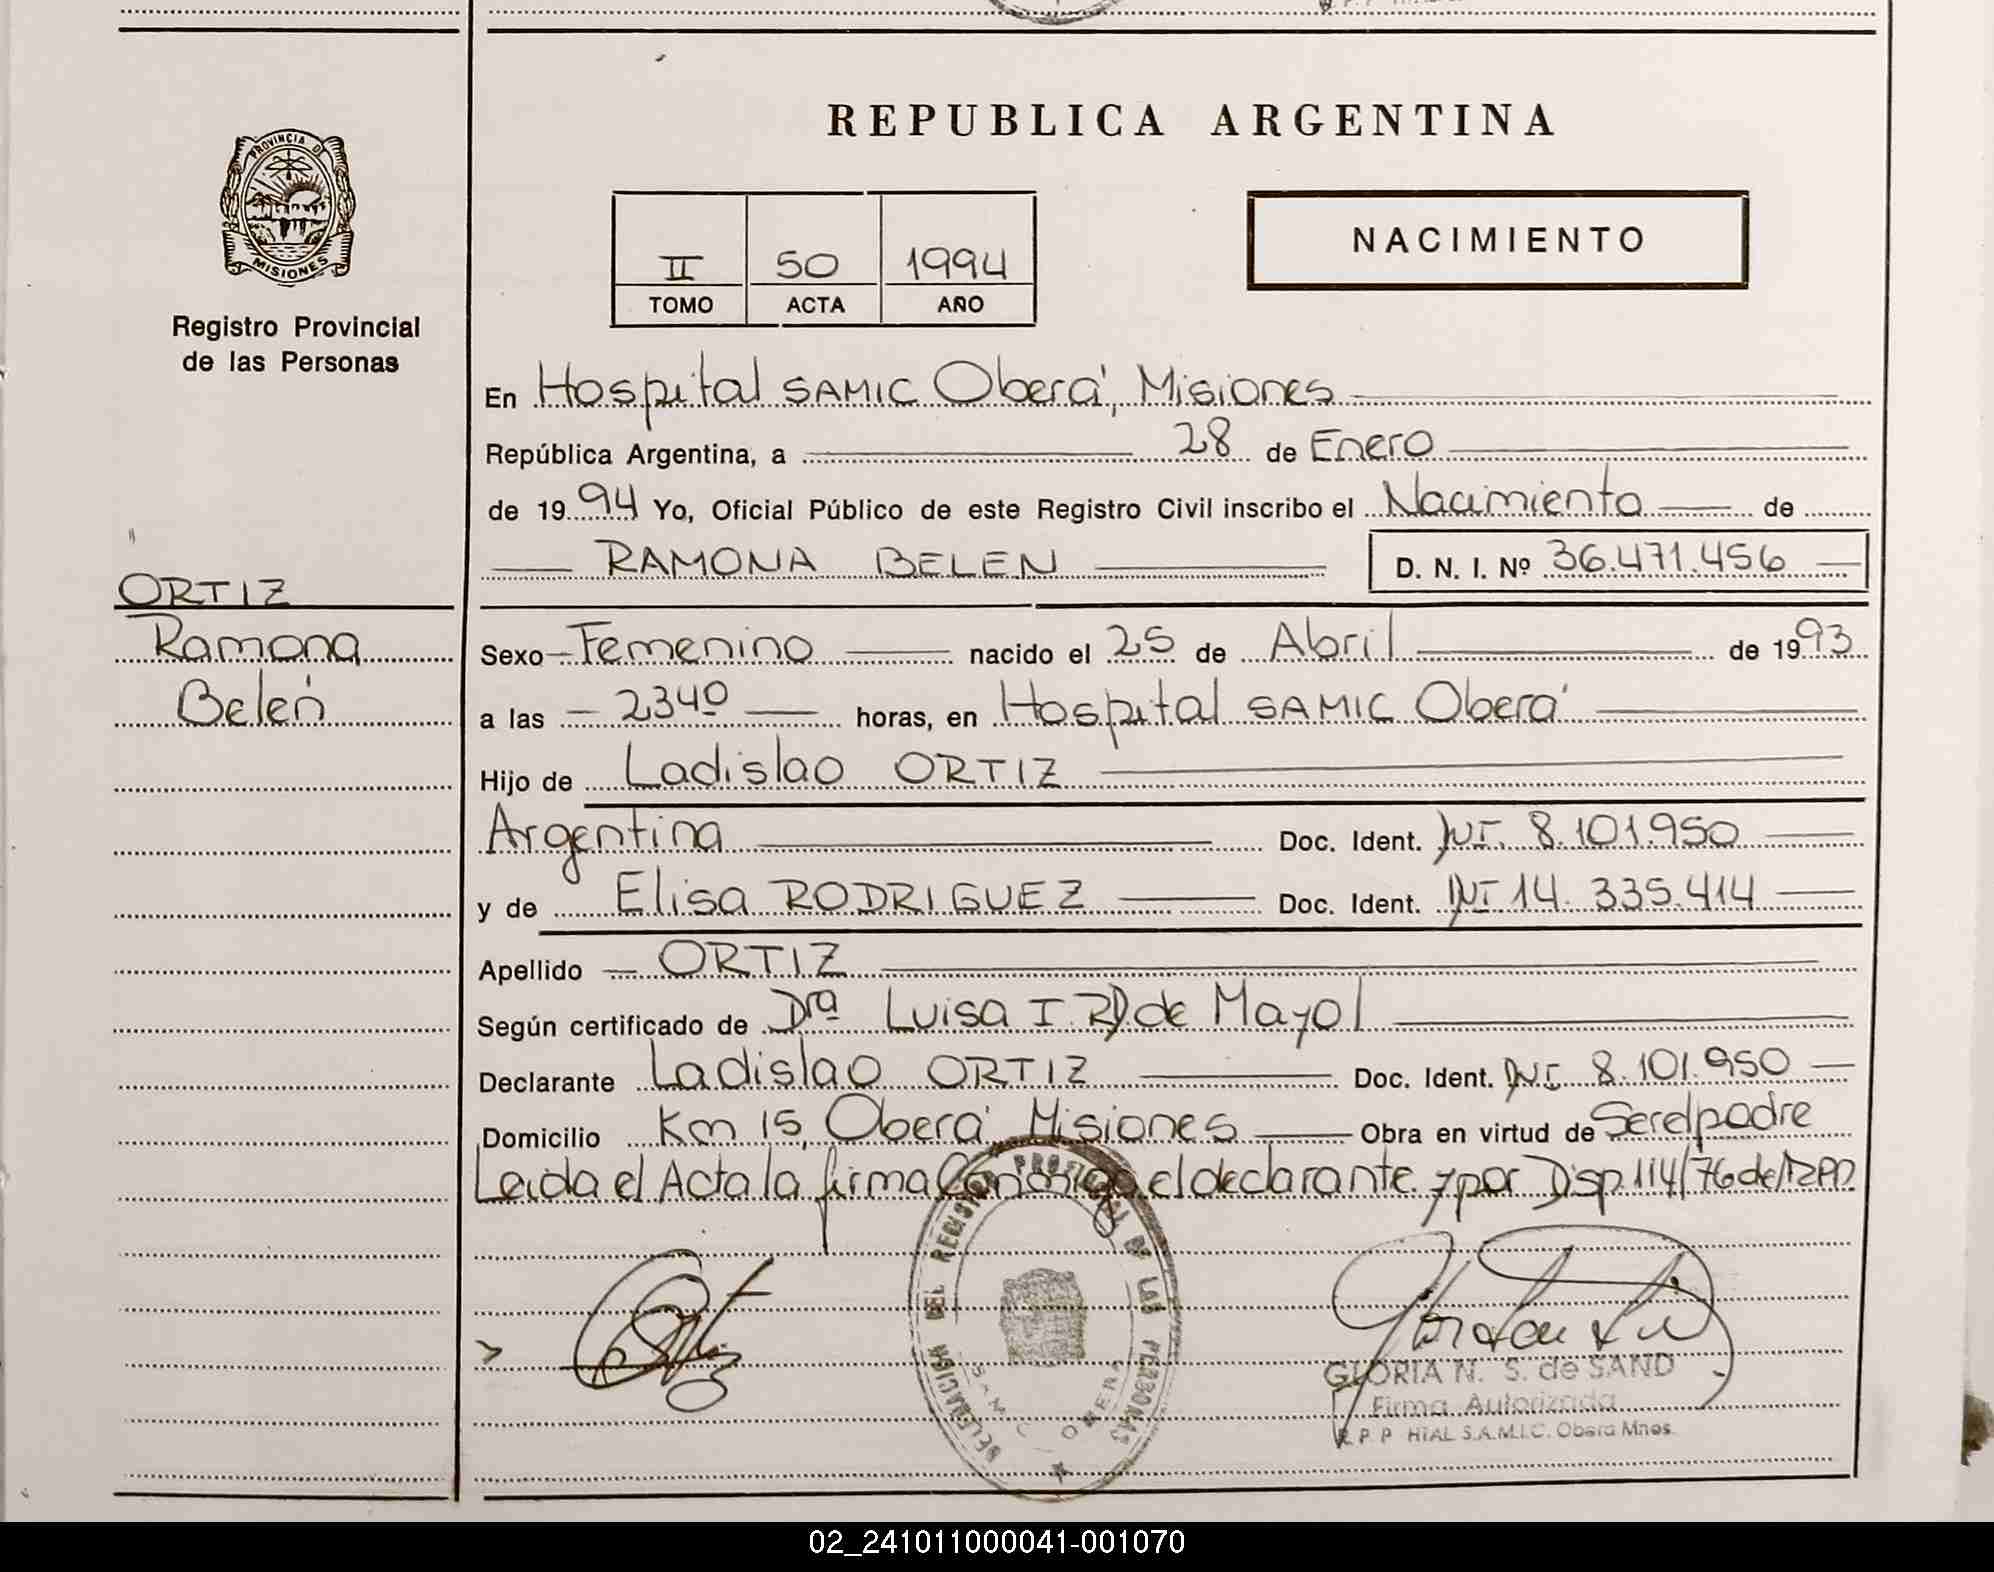 REPUBLICA ARGENTINA
PROVINCIA D
MISIONES
Registro Provincial
de las Personas
NACIMIENTO
II 50 1994
TOMO ACTA AÑO
En Hospital SAMIC Oberá, Misiones
República Argentina, a 28 de Enero
de 1994 Yo, Oficial Público de este Registro Civil inscribo el Nacimiento de
RAMONA BELEN D. N. I. Nº 36.471.456
ORTIZ
Ramona
Belén
Sexo Femenino nacido el 25 de Abril de 1993
a las 2340 horas, en Hospital SAMIC Oberá
Hijo de Ladislao ORTIZ
Argentina Doc. Ident. 8.101.950
y de Elisa RODRIGUEZ Doc. Ident. 14.335.414
Apellido ORTIZ
Según certificado de Dra Luisa I. R. de Mayol
Declarante Ladislao ORTIZ Doc. Ident. 8.101.950
Domicilio Km 15, Oberá Misiones Obra en virtud de Ser el padre
Leida el Acta la firma Conmigo el declarante y por Disp. 114/76 del RPP
DELEGACION DEL REGISTRO PROVINCIAL DE LAS PERSONAS
SAMIC OBERA
GLORIA N. S. de SAND
Firma Autorizada
R. P. P HTAL S.A.M.I.C. Oberá Mnes.
02_241011000041-001070